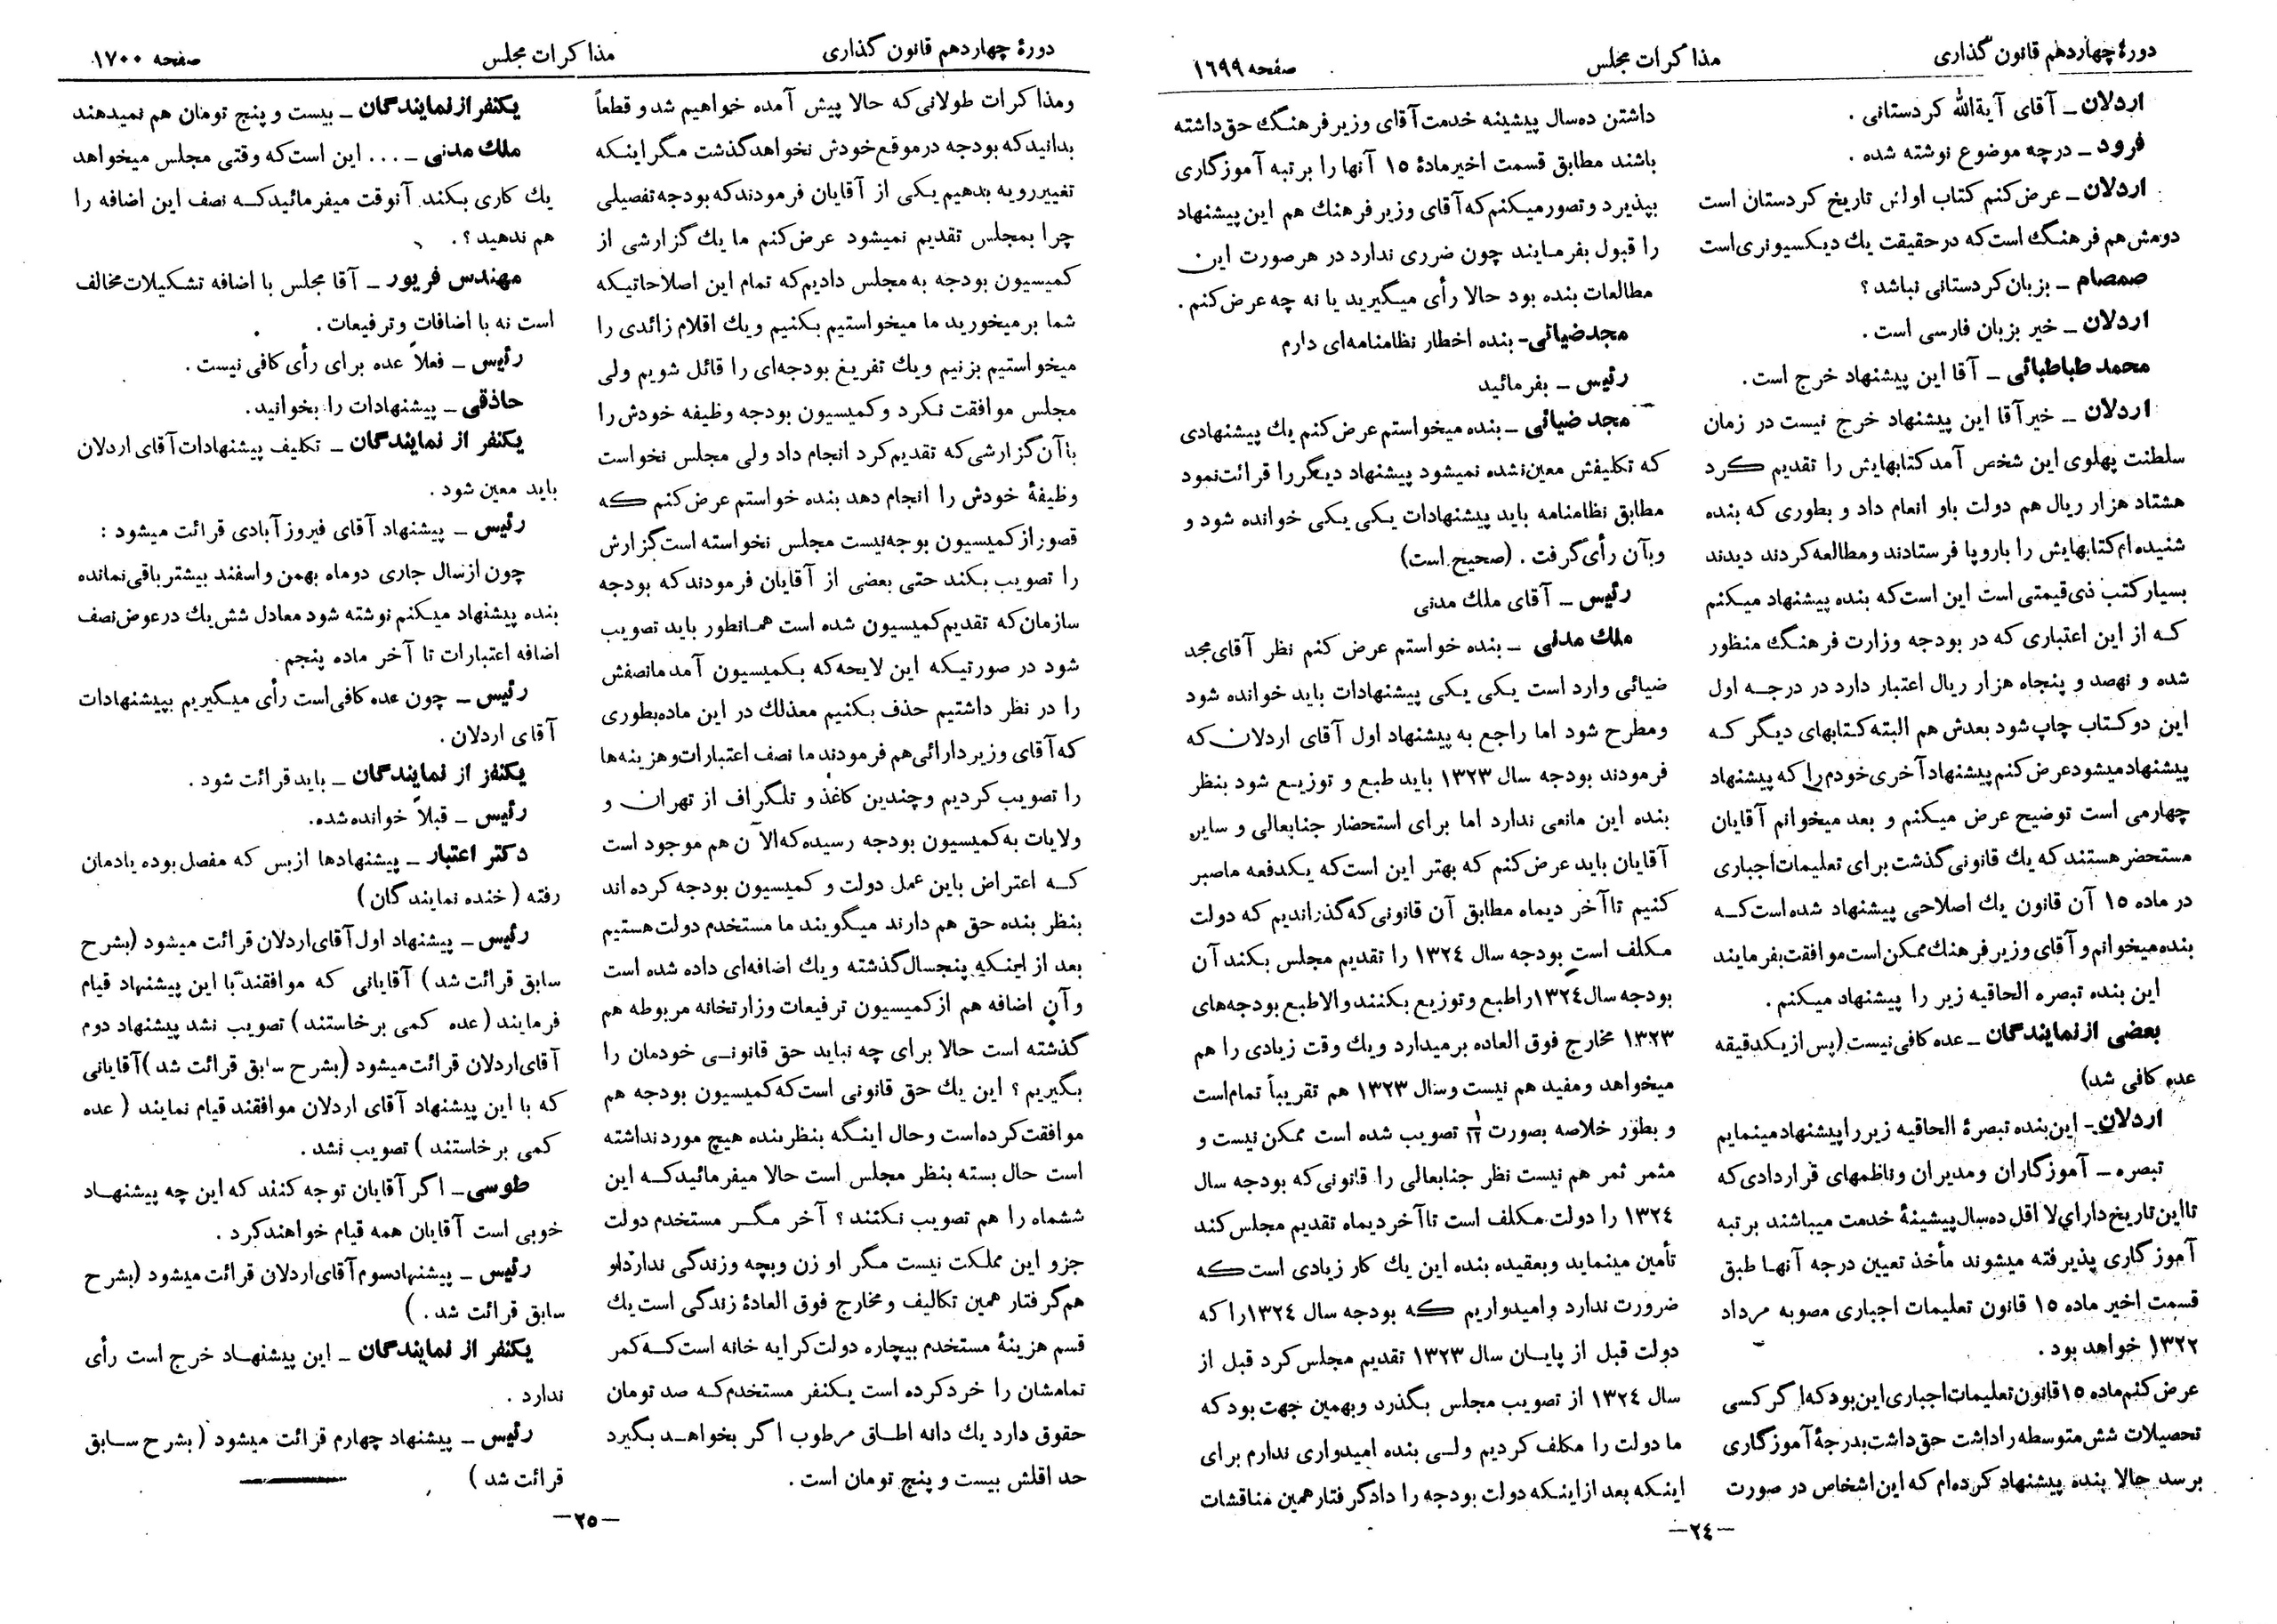 دورۀ چهاردهم قانون گذاری
مذاکرات مجلس
صفحه ۱۶۹۹
اردلان ـ آقای آیة‌الله کردستانی .
فرود ـ درچه موضوع نوشته شده .
اردلان ـ عرض کنم کتاب اولش تاریخ کردستان است
دومش هم فرهنگ است که درحقیقت یك دیکسیونری است
صمصام ـ بزبان کردستانی نباشد ؟
اردلان ـ خیر بزبان فارسی است .
محمد طباطبائی ـ آقا این پیشنهاد خرج است .
اردلان ـ خیر آقا این پیشنهاد خرج نیست در زمان
سلطنت پهلوی این شخص آمد کتابهایش را تقدیم کرد
هشتاد هزار ریال هم دولت باو انعام داد و بطوری که بنده
شنیده‌ام کتابهایش را باروپا فرستادند ومطالعه کردند دیدند
بسیار کتب ذی‌قیمتی است این است که بنده پیشنهاد میکنم
که از این اعتباری که در بودجه وزارت فرهنگ منظور
شده و نهصد و پنجاه هزار ریال اعتبار دارد در درجه اول
این دوکتاب چاپ شود بعدش هم البته کتابهای دیگر که
پیشنهاد میشود عرض کنم پیشنهاد آخری خودم را که پیشنهاد
چهارمی است توضیح عرض میکنم و بعد میخوانم آقایان
مستحضر هستند که یك قانونی گذشت برای تعلیمات اجباری
در ماده ۱۵ آن قانون یك اصلاحی پیشنهاد شده است که
بنده میخوانم و آقای وزیر فرهنك ممکن است موافقت بفرمایند
این بنده تبصره الحاقیه زیر را پیشنهاد میکنم .
بعضی از نمایندگان ـ عده کافی نیست (پس از یکدقیقه
عده کافی شد)
اردلان ـ این بنده تبصرۀ الحاقیه زیر را پیشنهاد مینمایم
تبصره ـ آموزگاران ومدیران وناظمهای قراردادی که
تا این تاریخ دارای لااقل ده‌سال پیشینۀ خدمت میباشند برتبه
آموزگاری پذیرفته میشوند مأخذ تعیین درجه آنها طبق
قسمت اخیر ماده ۱۵ قانون تعلیمات اجباری مصوبه مرداد
۱۳۲۲ خواهد بود .
عرض کنم ماده ۱۵ قانون تعلیمات اجباری این بود که اگر کسی
تحصیلات شش متوسطه را داشت حق داشت بدرجۀ آموزگاری
برسد حالا بنده پیشنهاد کرده‌ام که این اشخاص در صورت
داشتن ده‌سال پیشینه خدمت آقای وزیر فرهنگ حق داشته
باشند مطابق قسمت اخیر مادۀ ۱۵ آنها را برتبه آموزگاری
بپذیرد و تصور میکنم که آقای وزیر فرهنك هم این پیشنهاد
را قبول بفرمایند چون ضرری ندارد در هر صورت این
مطالعات بنده بود حالا رأی میگیرید یا نه چه عرض کنم .
مجدضیائی ـ بنده اخطار نظامنامه‌ای دارم
رئیس ـ بفرمائید
مجد ضیائی ـ بنده میخواستم عرض کنم یك پیشنهادی
که تکلیفش معین نشده نمیشود پیشنهاد دیگر را قرائت نمود
مطابق نظامنامه باید پیشنهادات یکی یکی خوانده شود و
وبآن رأی گرفت . (صحیح است)
رئیس ـ آقای ملك مدنی
ملك مدنی ـ بنده خواستم عرض کنم نظر آقای مجد
ضیائی وارد است یکی یکی پیشنهادات باید خوانده شود
ومطرح شود اما راجع به پیشنهاد اول آقای اردلان که
فرمودند بودجه سال ۱۳۲۳ باید طبع و توزیع شود بنظر
بنده این مانعی ندارد اما برای استحضار جنابعالی و سایر
آقایان باید عرض کنم که بهتر این است که یکدفعه ماصبر
کنیم تا آخر دیماه مطابق آن قانونی که گذراندیم که دولت
مکلف است بودجه سال ۱۳۲٤ را تقدیم مجلس بکند آن
بودجه سال ۱۳۲٤ را طبع و توزیع بکنند والا طبع بودجه‌های
۱۳۲۳ مخارج فوق العاده برمیدارد ویك وقت زیادی را هم
میخواهد ومفید هم نیست وسال ۱۳۲۳ هم تقریباً تمام است
و بطور خلاصه بصورت ۱/۱۲ تصویب شده است ممکن نیست و
مثمر ثمر هم نیست نظر جنابعالی را قانونی که بودجه سال
۱۳۲٤ را دولت مکلف است تا آخر دیماه تقدیم مجلس کند
تأمین مینماید وبعقیده بنده این یك کار زیادی است که
ضرورت ندارد و امیدواریم که بودجه سال ۱۳۲٤ را که
دولت قبل از پایان سال ۱۳۲۳ تقدیم مجلس کرد قبل از
سال ۱۳۲٤ از تصویب مجلس بگذرد وبهمین جهت بود که
ما دولت را مکلف کردیم ولی بنده امیدواری ندارم برای
اینکه بعد از اینکه دولت بودجه را داد گرفتار همین مناقشات
ـ۲٤ـ
دورۀ چهاردهم قانون گذاری
مذاکرات مجلس
صفحه ۱۷۰۰
ومذاکرات طولانی که حالا پیش آمده خواهیم شد و قطعاً
بدانید که بودجه در موقع خودش نخواهد گذشت مگر اینکه
تغییر رویه بدهیم یکی از آقایان فرمودند که بودجه تفصیلی
چرا بمجلس تقدیم نمیشود عرض کنم ما یك گزارشی از
کمیسیون بودجه به مجلس دادیم که تمام این اصلاحاتیکه
شما برمیخورید ما میخواستیم بکنیم ویك اقلام زائدی را
میخواستیم بزنیم ویك تفریغ بودجه‌ای را قائل شویم ولی
مجلس موافقت نکرد و کمیسیون بودجه وظیفه خودش را
با آن گزارشی که تقدیم کرد انجام داد ولی مجلس نخواست
وظیفۀ خودش را انجام دهد بنده خواستم عرض کنم که
قصور از کمیسیون بوجه نیست مجلس نخواسته است گزارش
را تصویب بکند حتی بعضی از آقایان فرمودند که بودجه
سازمان که تقدیم کمیسیون شده است همانطور باید تصویب
شود در صورتیکه این لایحه که بکمیسیون آمد مانصفش
را در نظر داشتیم حذف بکنیم معذلك در این ماده بطوری
که آقای وزیر دارائی هم فرمودند ما نصف اعتبارات و هزینه‌ها
را تصویب کردیم وچندین کاغذ و تلگراف از تهران و
ولایات به کمیسیون بودجه رسیده که الآن هم موجود است
که اعتراض باین عمل دولت و کمیسیون بودجه کرده‌اند
بنظر بنده حق هم دارند میگویند ما مستخدم دولت هستیم
بعد از اینکه پنجسال گذشته ویك اضافه‌ای داده شده است
و آن اضافه هم از کمیسیون ترفیعات وزارتخانه مربوطه هم
گذشته است حالا برای چه نباید حق قانونی خودمان را
بگیریم ؟ این یك حق قانونی است که کمیسیون بودجه هم
موافقت کرده‌است وحال اینگه بنظر بنده هیچ مورد نداشته
است حال بسته بنظر مجلس است حالا میفرمائید که این
ششماه را هم تصویب نکنند ؟ آخر مگر مستخدم دولت
جزو این مملکت نیست مگر او زن وبچه وزندگی ندارد او
هم گرفتار همین تکالیف و مخارج فوق العادۀ زندگی است یك
قسم هزینۀ مستخدم بیچاره دولت کرایه خانه است که کمر
تمامشان را خرد کرده است یکنفر مستخدم که صد تومان
حقوق دارد یك دانه اطاق مرطوب اگر بخواهد بگیرد
حد اقلش بیست و پنج تومان است .
یکنفر از نمایندگان ـ بیست و پنج تومان هم نمیدهند
ملك مدنی ـ . . . این است که وقتی مجلس میخواهد
یك کاری بکند آنوقت میفرمائید که نصف این اضافه را
هم ندهید ؟ .
مهندس فریور ـ آقا مجلس با اضافه تشکیلات مخالف
است نه با اضافات وترفیعات .
رئیس ـ فعلاً عده برای رأی کافی نیست .
حاذقی ـ پیشنهادات را بخوانید .
یکنفر از نمایندگان ـ تکلیف پیشنهادات آقای اردلان
باید معین شود .
رئیس ـ پیشنهاد آقای فیروزآبادی قرائت میشود :
چون از سال جاری دوماه بهمن واسفند بیشتر باقی نمانده
بنده پیشنهاد میکنم نوشته شود معادل شش یك در عوض نصف
اضافه اعتبارات تا آخر ماده پنجم .
رئیس ـ چون عده کافی است رأی میگیریم بپیشنهادات
آقای اردلان .
یکنفر از نمایندگان ـ باید قرائت شود .
رئیس ـ قبلاً خوانده شده.
دکتر اعتبار ـ پیشنهادها ازبس که مفصل بوده یادمان
رفته ( خنده نمایندگان )
رئیس ـ پیشنهاد اول آقای اردلان قرائت میشود (بشرح
سابق قرائت شد ) آقایانی که موافقند با این پیشنهاد قیام
فرمایند (عده کمی برخاستند) تصویب نشد پیشنهاد دوم
آقای اردلان قرائت میشود (بشرح سابق قرائت شد) آقایانی
که با این پیشنهاد آقای اردلان موافقند قیام نمایند ( عده
کمی برخاستند ) تصویب نشد .
طوسی ـ اگر آقایان توجه کنند که این چه پیشنهاد
خوبی است آقایان همه قیام خواهند کرد .
رئیس ـ پیشنهاد سوم آقای اردلان قرائت میشود (بشرح
سابق قرائت شد . )
یکنفر از نمایندگان ـ این پیشنهاد خرج است رأی
ندارد .
رئیس ـ پیشنهاد چهارم قرائت میشود ( بشرح سابق
قرائت شد )
ـ۲۵ـ